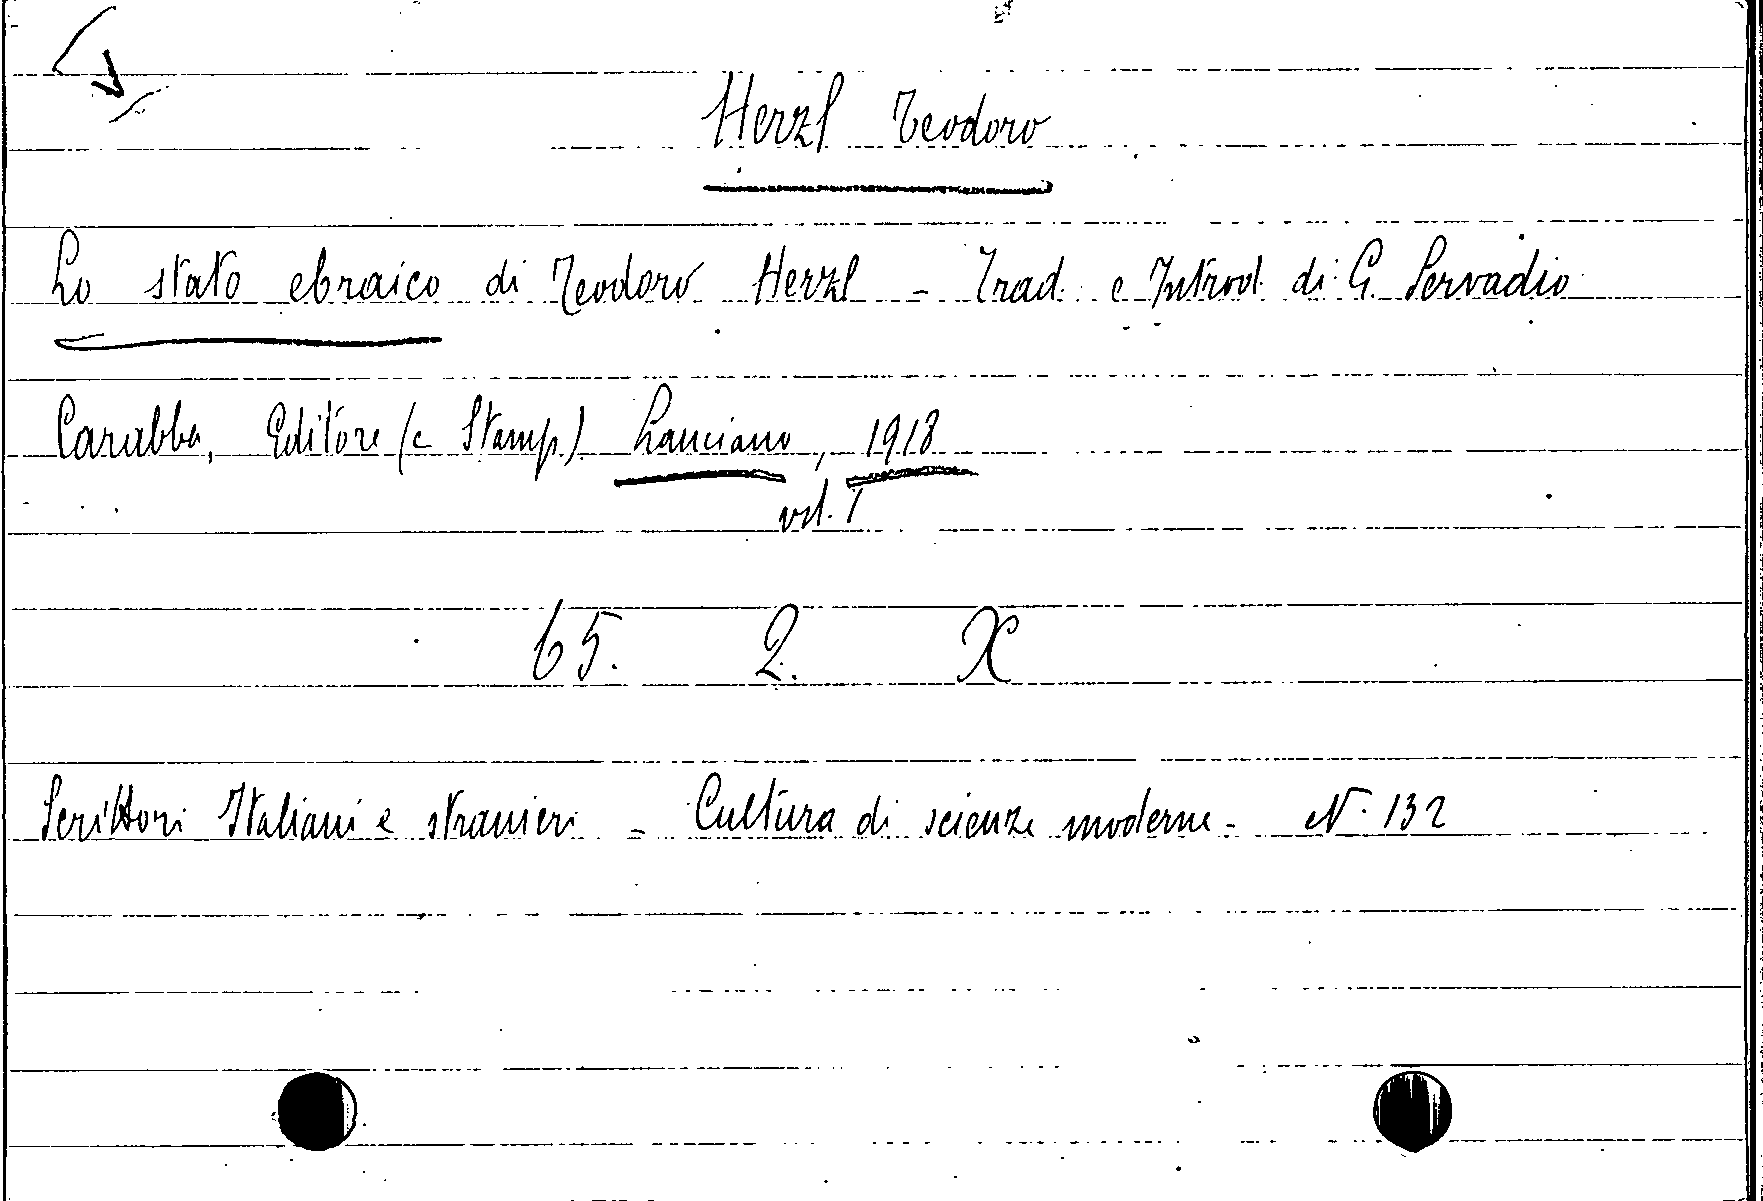 Herzl Teodoro
Lo stato ebraico di Teodoro Herzl - Trad. e Introd. di G. Servadio
Carabba, Editore (e Stamp.) Lanciano, 1918
vol. 1
65. 2. X
Scrittori Italiani e stranieri - Cultura di scienze moderne - N. 132